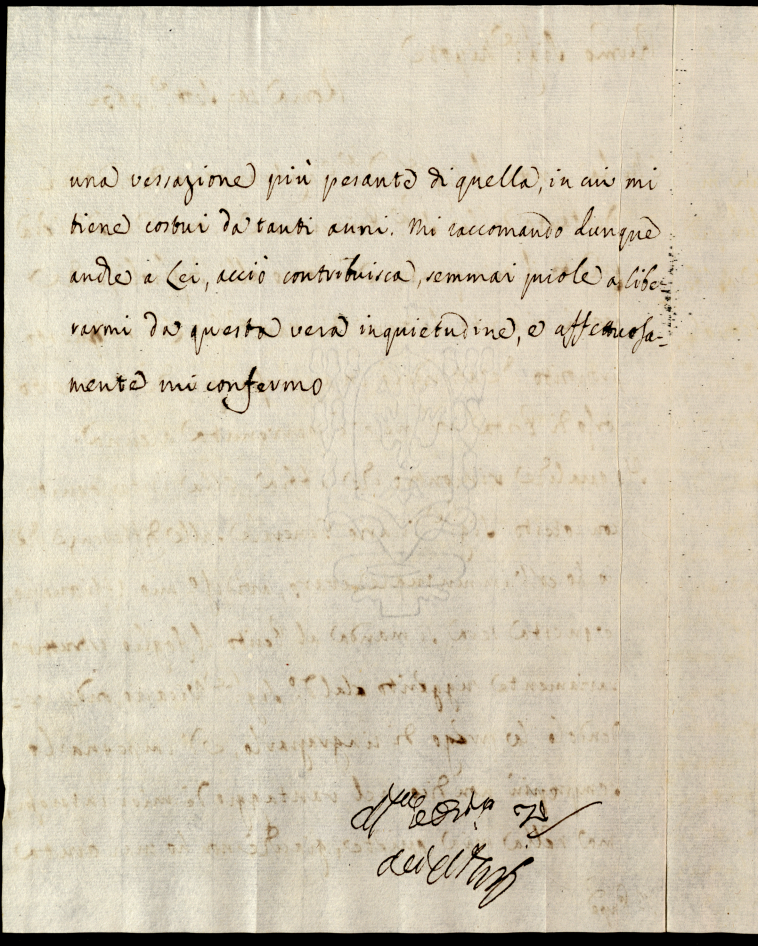 una vessazione più pesante di quella, in cui mi
tiene costui da tanti anni. Mi raccomando dunque
anche a Lei, acciò contribuisca, semmai puole a libe-
rarmi da questa vera inquietudine, e affettuosa-
mente mi confermo